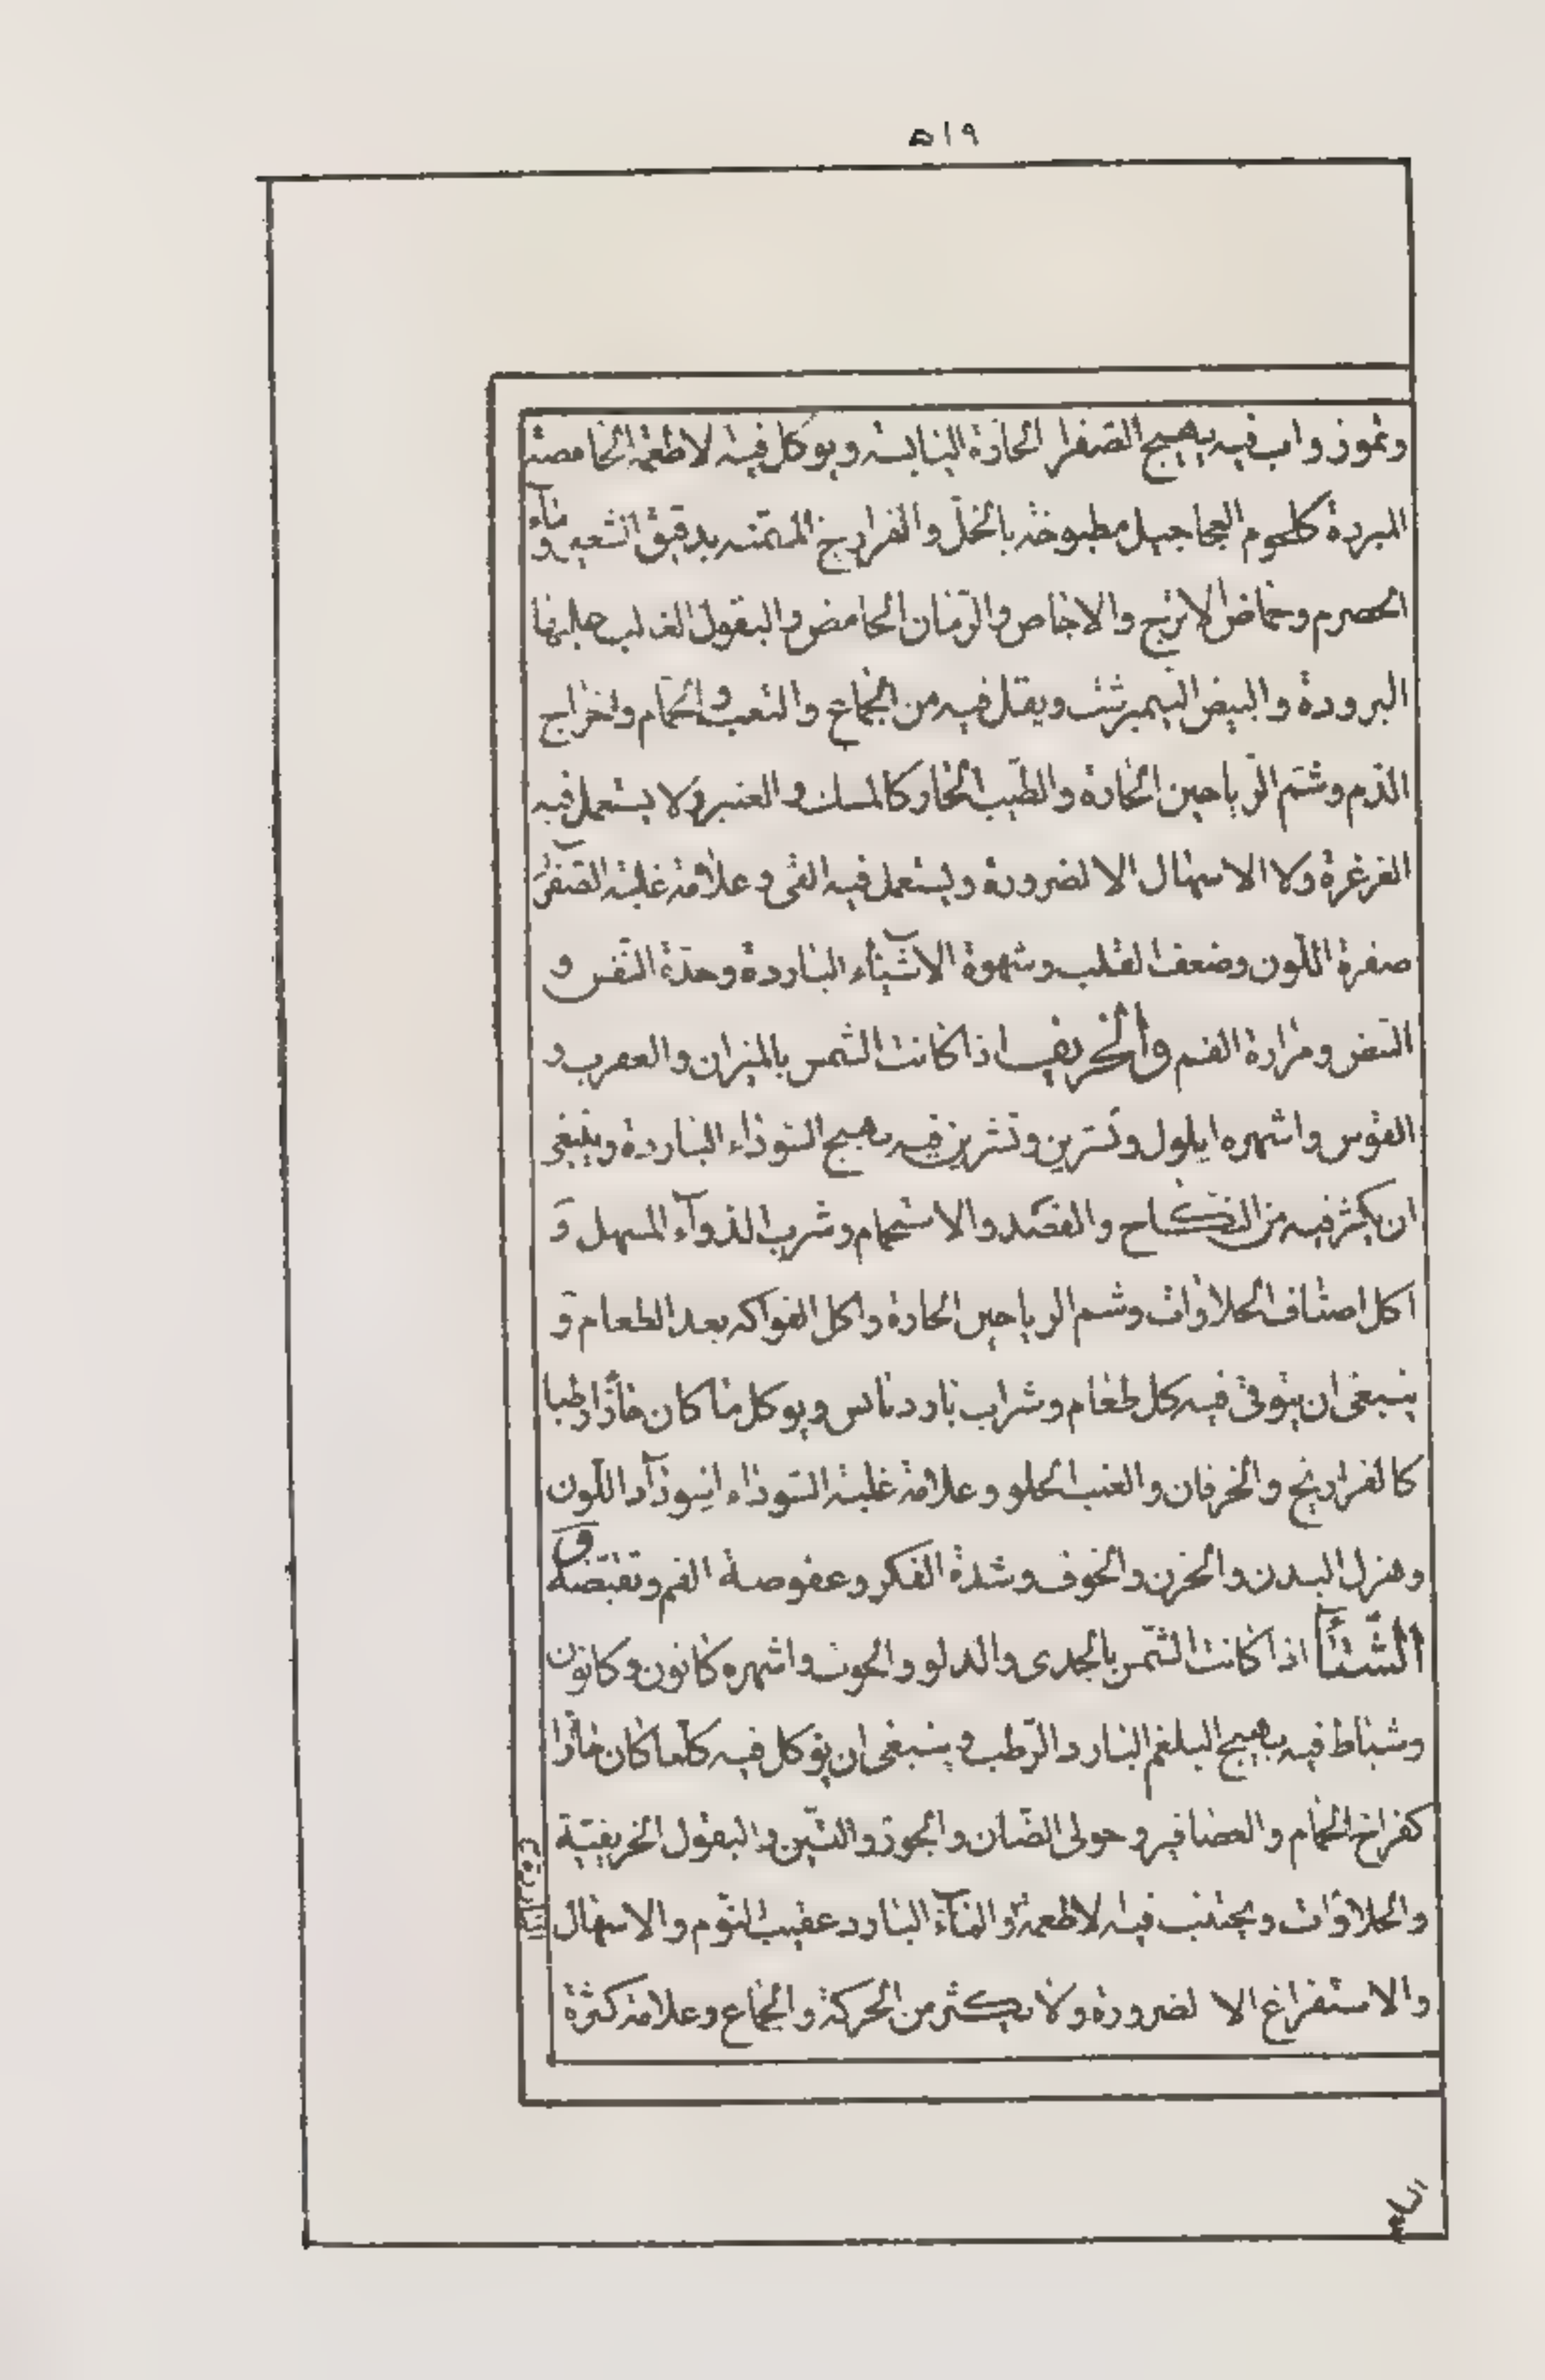 ٥١٩
وتموز واب فيه يهيج الصفرا الحارة اليابسة ويوكل فيه لاطعمة الحامضة
المبردة كلحوم العجاجيل مطبوخة بالخل والفراريخ المسمنة بدقيق الشعير وماء
الحصرم وحماض الاترج والاجاص والرمان الحامض والبقول الغالب عليها
البرودة والبيض النيمبرشت ويقلل فيه من الجماع والتعب والحمام واخراج
الدم وشم الرياحين الحارة والطيب الحار كالمسك والعنبر ولا يستعمل فيه
الغرغرة ولا الاسهال الا لضرورة ويستعمل فيه القى وعلامة غلبة الصفرآ
صفرة اللون وضعف القلب وشهوة الاشيآء الباردة وحدة النفس و
النبض ومرارة الفم والخريف اذا كانت الشمس بالميزان والعقرب و
القوس واشهره ايلول وتشرين وتشرين فيه يهيج السوداء الباردة وينبغى
ان يكثر فيه من النكاح والفصد والاستحمام وشرب الدوآء المسهل و
اكل اصناف الحلاوات وشم الرياحين الحارة واكل الفواكه بعد الطعام و
ينبغى ان يتوقى فيه كل طعام وشراب بارد يابس ويوكل ما كان حارا رطبا
كالفراريج والخرفان والعنب الحلو وعلامة غلبة السوداء اسودآد اللون
وهزل البدن والحزن والخوف وشدة الفكر وعفوصة الفم وتقبضه و
الشتآ اذا كانت الشمس بالجدى والدلو والحوت واشهره كانون وكانون
وشباط فيه يهيج البلغم البارد الرطب وينبغى ان يوكل فيه كلما كان حارا
كفراخ الحمام والعصافير وحولى الضان والجوز والتين والبقول الخريفية
والحلاوات ويجتنب فيه لاطعمة والمآء البارد عقيب النوم والاسهال
الباردة ع
والاستفراغ الا لضرورة ولا يكثر من الحركة والجماع وعلامة كثرة